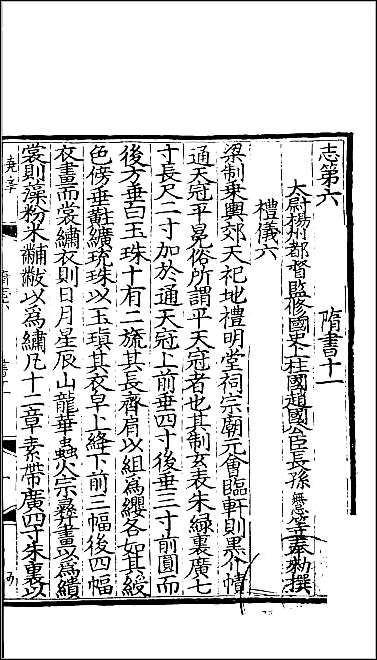 志第六 隋書十一
太尉揚州都督監修國史上柱國趙國公臣長孫無忌等奉勑撰
禮儀六
梁制乗輿郊天祀地禮明堂祠宗廟元會臨軒則黒介幘
通天冠平冕俗所謂平天冠者也其制玄表朱緑裏廣七
寸長尺二寸加於通天冠上前垂四寸後垂三寸前圓而
後方垂白玉珠十有二旒其長齊肩以組為纓各如其綬
色傍垂黈纊珫珠以玉瑱其衣皁上絳下前三幅後四幅
衣畫而裳繡衣則日月星辰山龍華蟲火宗彝畫以為繢
裳則藻粉米黼黻以為繡凡十二章素帶廣四寸朱裏以